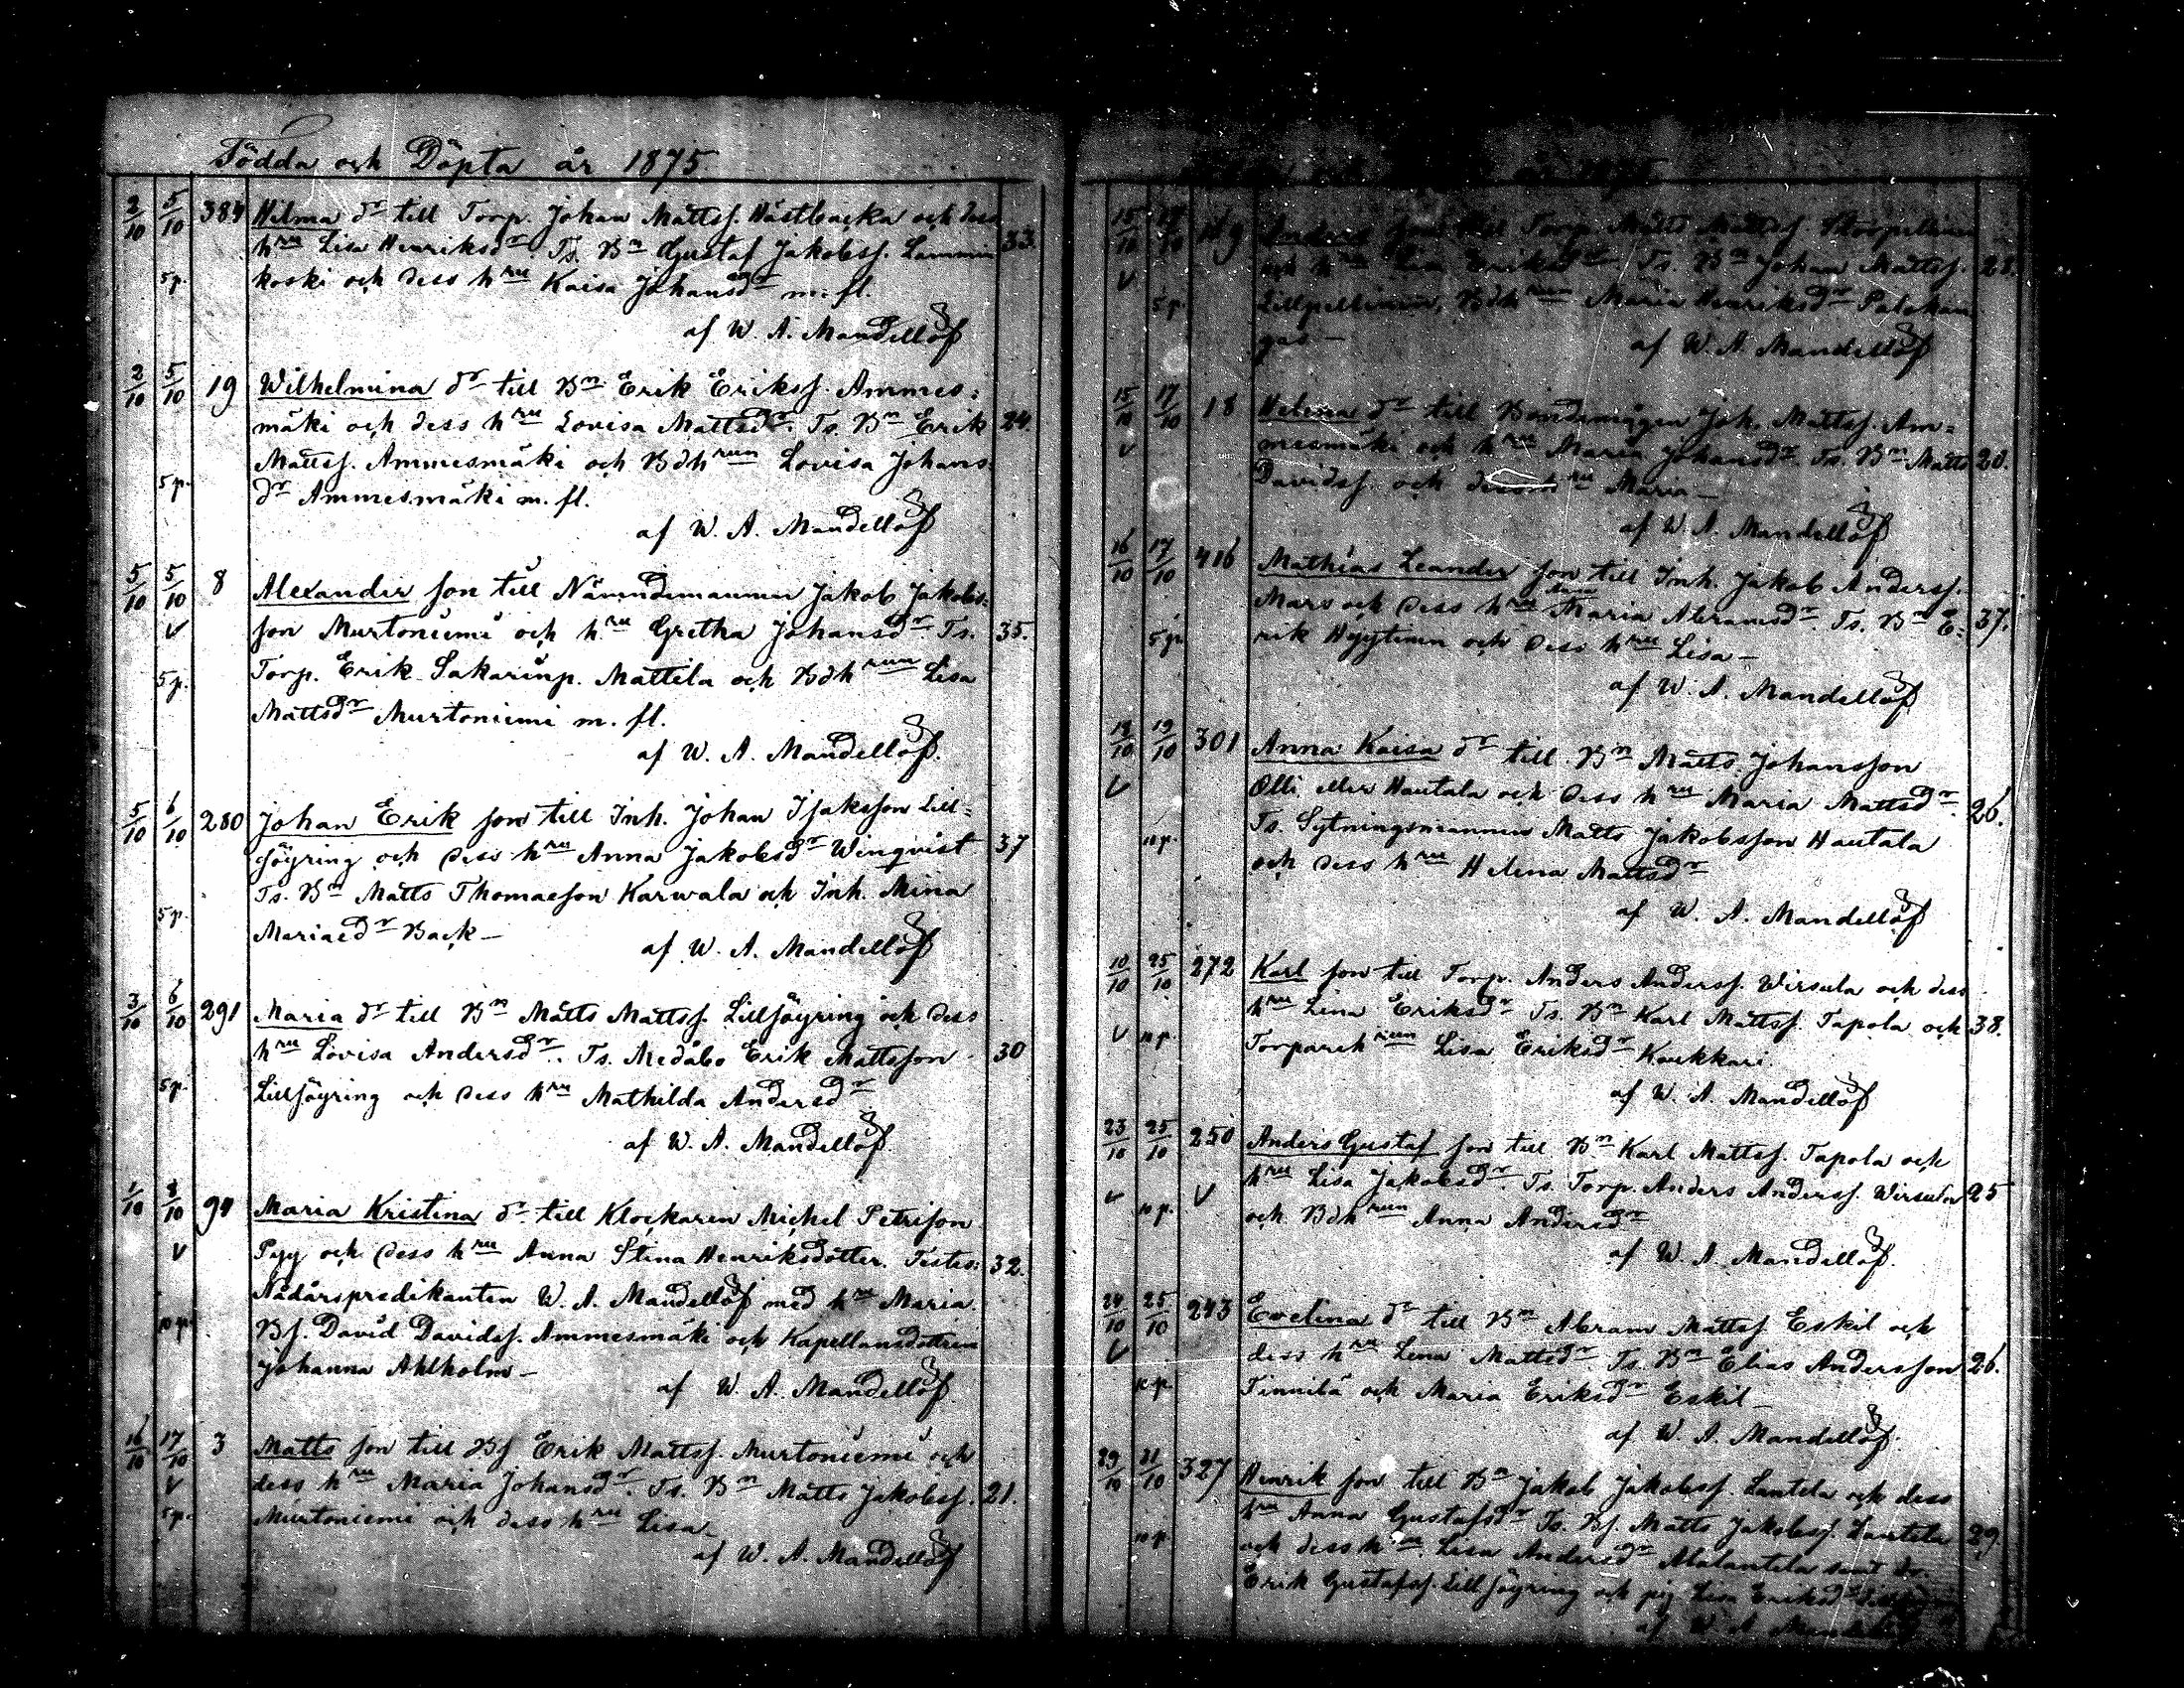 Födda och Döpta år 1875.
2/10 5/10 384 Hilma dr till Torp. Johan Mattsf. Hästbacka och dess
hru Lisa Henriksdr. Ts. Bn Gustaf Jakobsf. Lammin 33.
5 p. koski och dess hru Kaisa Johansdr m. fl.
af W. A. Mandellöf
2/10 5/10 19 Wilhelmina dr till Bn Erik Eriksf. Ammes=
mäki och dess hru Lovisa Mattsdr. Ts. Bn Erik 24.
Mattsf. Ammesmäki och Bdhrun Lovisa Johans
5 p. dr Ammesmäki m. fl.
af W. A. Mandellöf
5/10 5/10 8 Alexander son till Nämndemannen Jakob Jakobs=
v son Murtoniemi och hru Gretha Johansdr Ts. 35.
5 p. Torp. Erik Sakarinp. Mattila och Bdhrun Lisa
Mattsdr Murtoniemi m. fl.
af W. A. Mandellöf.
5/10 6/10 280 Johan Erik son till Inh. Johan Isaksson Lill=
föyring och dess hru Anna Jakobsdr Winqvist 37
Ts. Bn Matts Thomasson Karwala och Inh. Mina
5 p. Mariaedr Back—
af W. A. Mandellöf
3/10 6/10 291 Maria dr till Bn Matts Mattsf. Lillföyring och dess
hru Lovisa Andersdr. Ts. Medåbo Erik Mattsson 30
5 p. Lillföyring och dess hru Mathilda Andersdr
af W. A. Mandellöf.
1/10 8/10 94 Maria Kristina dr till Klockaren Michel Petrison
v Pyy och dess hru Anna Stina Henriksdotter. Testes: 32.
Nådårspredikanten W. A. Mandellöf med hru Maria.
10 p. Bf. David Davidsf. Ammesmäki och Kapellansdottren
Johanna Ahlholm—
af W. A. Mandellöf
16/10 17/10 3 Matts son till Bf Erik Mattsf. Murtoniemi och
v dess hru Maria Johansdr. Ts. Bn Matts Jakobsf. 21.
5 p. Murtoniemi och dess hru Lisa—
af W. A. Mandellöf
15/10 17/10 Anders son till Torp. Matts Mattsf. Storpeltinen
v och hru Lisa Eriksdr. Ts. Bn Johan Mattsf. 28.
5 p. Lillpeltinen, Bdhrun Maria Henriksdr Palokan
gas—
af W. A. Mandellöf
15/10 17/10 18 Helena dr till Bondemågen Joh. Mattsf. Am=
v mesmäki och hru Maria Johansdr. Ts. Bn Matts 20.
Davidsf. och dess hru Maria—
af W. A. Mandellöf
16/10 17/10 416 Mathias Leander son till Inh. Jakob Andersf.
Mars och dess hru Maria Abramsdr. Ts. Bn E= 37.
5 p. rik Hyytinen och dess hru Lisa—
af W. A. Mandellöf
18/10 19/10 301 Anna Kaisa dr till Bn Matts Johansson
v Olli eller Hautala och dess hru Maria Mattsdr. 26.
10 p. Ts. Sytningsmannen Matts Jakobsson Hautala
och dess hru Helena Mattsdr
af W. A. Mandellöf
10/10 25/10 272 Karl son till Torp. Anders Andersf. Wirsula och dess
hru Lina Eriksdr Ts. Bn Karl Mattsf. Tapola och 38.
v 10 p. Torparehrun Lisa Eriksdr Kaukkari.
af W. A. Mandellöf
23/10 25/10 250 Anders Gustaf son till Bn Karl Mattsf. Tapola och
v 10 p. v hru Lisa Jakobsdr. Ts. Torp. Anders Andersf. Wirsula 25
och Bdhrun Anna Andersdr
af W. A. Mandellöf.
24/10 25/10 243 Evelina dr till Bn Abram Mattsf Eskil och
v dess hru Lena Mattsdr Ts. Bn Elias Andersson 26.
10 p. Tinnilä och Maria Eriksdr Eskil—
af W. A. Mandellöf.
29/10 31/10 327 Henrik son till Bn Jakob Jakobsf. Lantela och dess
hru Anna Gustafsdr Ts. Bf. Matts Jakobsf. Lantela 29.
10 p. och dess hru Lisa Andersdr Alalantela samt dr.
Erik Gustafsf. Lillföyring och pig. Lisa Eriksdr
af W. A. Mandellöf